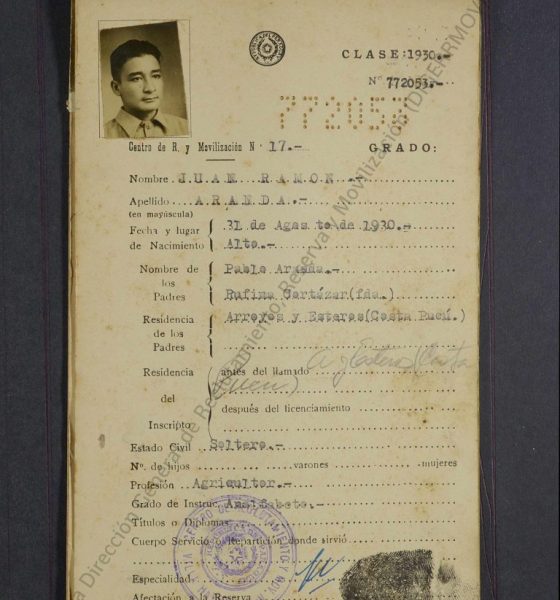 CLASE: 1930.-
Nº 772053.-
772053
Centro de R. y Movilización N· 17.-
GRADO:
Nombre JUAN RAMON
Apellido ARANDA.-
(en mayúscula)
Fecha y lugar
de Nacimiento
31 de Agosto de 1930.-
Alto.-
Nombre de
los
Padres
Pablo Aranda.-
Rufina Cortézar(fda.)
Residencia
de los
Padres
Arroyos y Esteros(Costa Pucú.)
Residencia
del
Inscripto
antes del llamado A y Esteros (Costa
después del licenciamiento
Estado Civil Soltero.-
Nº. de hijos varones mujeres
Profesión Agricultor.-
Grado de Instruc. Analfabeto.-
Títulos o Diplomas
Cuerpo Servicio o Repartición donde sirvió
Especialidad
Afectación a la Reserva
Dirección General de Reclutamiento, Reserva y Movilización